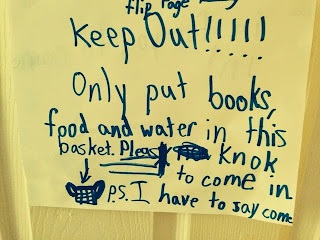 flip Page
Keep Out!!!!!
Only put books,
food and water in this
basket. Pleas knok
to come in
P.S. I have to say come